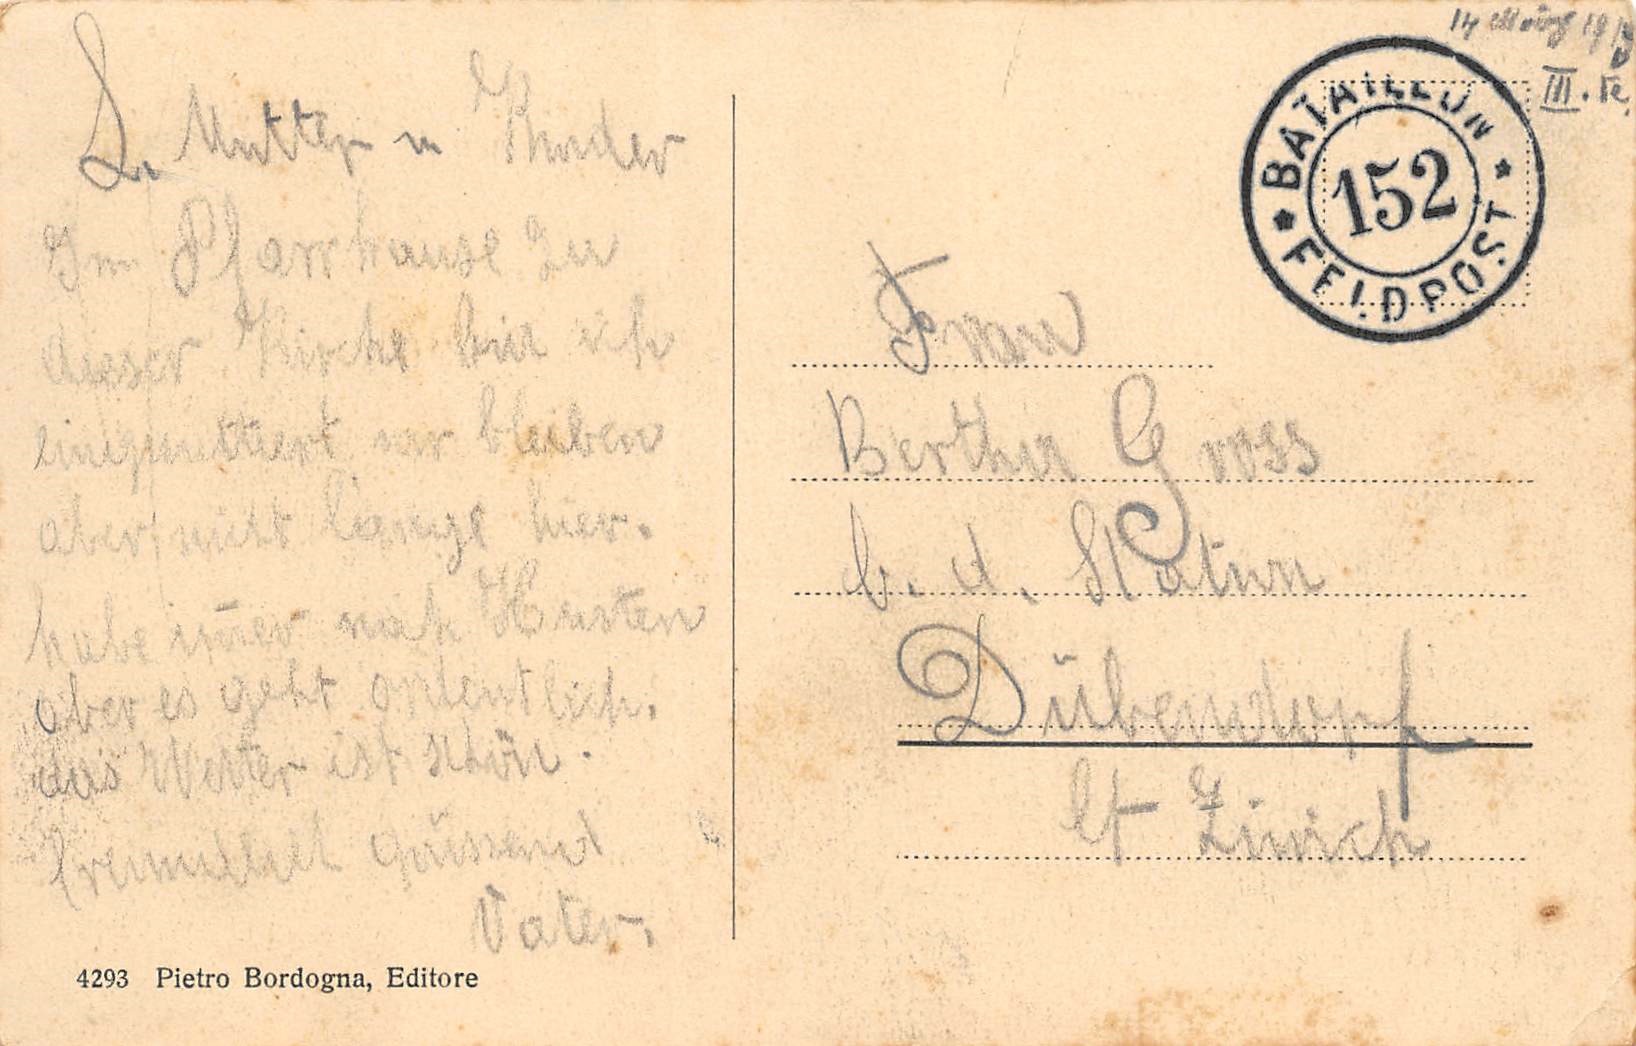 L. Mutter u Kinder
Im Pfarrhause zu
dieser Kirche bin ich
einquartiert wir bleiben
aber nicht lange hier.
habe im̄er noch Husten
aber es geht ordentlich.
das Wetter ist schön.
freundlich grüssend
Vater.
4293 Pietro Bordogna, Editore
14 März 19
III.
BATAILLON
152
FELDPOST
Frau
Bertha Gross
b. d. Station
Dübendorf
Ct Zürich